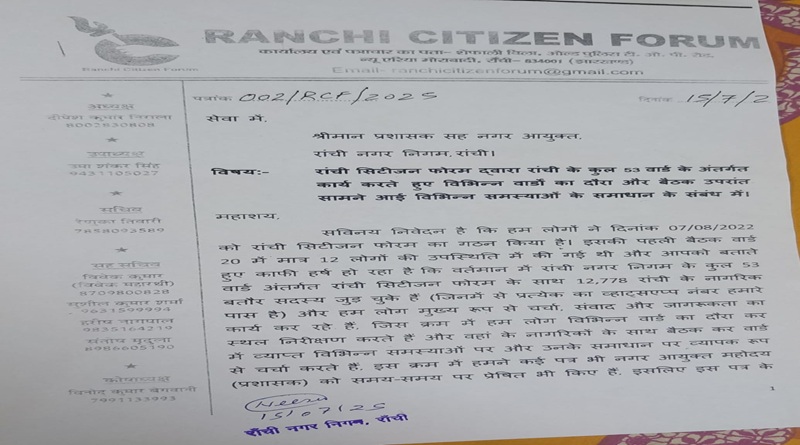 RANCHI CITIZEN FORUM
Ranchi Citizen Forum
कार्यालय एवं पत्राचार का पता- शेफाली विला, ओल्ड पुलिस टी. ओ. पी. रोड,
न्यू एरिया मोराबादी, राँची- 834001 (झारखण्ड)
Email- ranchicitizenforum@gmail.com
पत्रांक 002/RCF/2025
दिनांक 15/7/2
अध्यक्ष
दीपेश कुमार निराला
8002830808
उपाध्यक्ष
उमा शंकर सिंह
9431105027
सचिव
रेणुका तिवारी
7858093589
सह सचिव
विवेक कुमार
(विवेक महारथी)
8709800828
सुशील कुमार शर्मा
9631599994
हरीश नागपाल
9835164219
संतोष मृदुला
8986605190
कोषाध्यक्ष
विनोद कुमार बेगवानी
7991133993
सेवा में,
श्रीमान प्रशासक सह नगर आयुक्त,
रांची नगर निगम, रांची।
विषयः- रांची सिटीजन फोरम द्वारा रांची के कुल 53 वार्ड के अंतर्गत
कार्य करते हुए विभिन्न वार्डों का दौरा और बैठक उपरांत
सामने आई विभिन्न समस्याओं के समाधान के संबंध में।
महाशय,
सविनय निवेदन है कि हम लोगों ने दिनांक 07/08/2022
को रांची सिटीजन फोरम का गठन किया है। इसकी पहली बैठक वार्ड
20 में मात्र 12 लोगों की उपस्थिति में की गई थी और आपको बताते
हुए काफी हर्ष हो रहा है कि वर्तमान में रांची नगर निगम के कुल 53
वार्ड अंतर्गत रांची सिटीजन फोरम के साथ 12,778 रांची के नागरिक
बतौर सदस्य जुड़ चुके हैं (जिनमें से प्रत्येक का व्हाट्सएप्प नंबर हमारे
पास है) और हम लोग मुख्य रूप से चर्चा, संवाद और जागरूकता का
कार्य कर रहे हैं, जिस क्रम में हम लोग विभिन्न वार्ड का दौरा कर
स्थल निरीक्षण करते हैं और वहां के नागरिकों के साथ बैठक कर वार्ड
में व्याप्त विभिन्न समस्याओं पर और उनके समाधान पर व्यापक रूप
से चर्चा करते हैं. इस क्रम में हमने कई पत्र भी नगर आयुक्त महोदय
(प्रशासक) को समय-समय पर प्रेषित भी किए हैं. इसलिए इस पत्र के
1
15/07/25
राँची नगर निगम, राँची